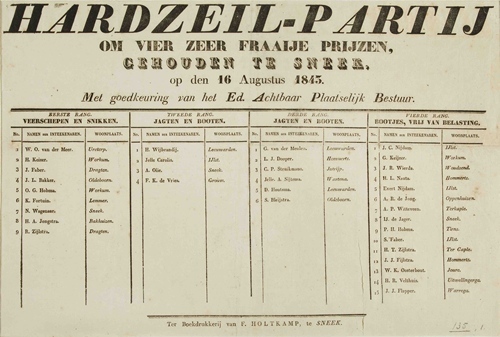 HARDZEIL-PARTIJ
OM VIER ZEER FRAAIJE PRIJZEN,
GEHOUDEN TE SNEEK,
op den 16 Augustus 1843.
Met goedkeuring van het Ed. Achtbaar Plaatselijk Bestuur.
EERSTE RANG.
VEERSCHEPEN EN SNIKKEN.
No. NAMEN der INTEEKENAREN. WOONPLAATS.
1 W. O. van der Meer. Ureterp.
2 H. Keizer. Workum.
3 J. Faber. Dragten.
4 J. L. Bakker. Oldeboorn.
5 O. G. Holsma. Workum.
6 K. Fortuin. Lemmer.
7 N. Wagenaer. Sneek.
8 H. A. Jongstra. Bakhuizen.
9 R. Zijlstra. Dragten.
TWEEDE RANG.
JAGTEN EN BOOTEN.
No. NAMEN der INTEEKENAREN. WOONPLAATS.
1 H. Leeuwarden.
2 Jelle Carolis. IJlst.
3 A. Olin. Sneek.
4 F. K. de Vries. Grouw.
DERDE RANG.
JAGTEN EN BOOTEN.
No. NAMEN der INTEEKENAREN. WOONPLAATS.
1 G. van der Meulen. Leeuwarden.
2 L. J. Hommerts.
3 C. P.
4 Jelle A. Woudsend.
5 B. Houtsma. Leeuwarden.
6 S. Oldeboorn.
VIERDE RANG.
BOOTJES, VRIJ VAN BELASTING.
No. NAMEN der INTEEKENAREN. WOONPLAATS.
1 J. C. Nijdam. IJlst.
2 G. Keijzer. Workum.
3 J. R. Wierda. Woudsend.
4 H. L. Hommerts.
5 Evert Nijdam. IJlst.
6 A. B. de Jong. Oppenhuizen.
7 A. P. Wateraus. Terkaple.
8 IJ. de Jager. Sneek.
9 P. H. Holsma. Tirns.
10 S. Taber. IJlst.
11 H. T. Zijlstra. Ter Caple.
12 J. J. Fijlstra. Hommerts.
13 W. K. Oosterhout. Joure.
14 H. R. Velthuis. Uitwellingerga.
15 J. J. Plapper. Warrega.
Ter Boekdrukkerij van F. HOLTKAMP, te SNEEK.